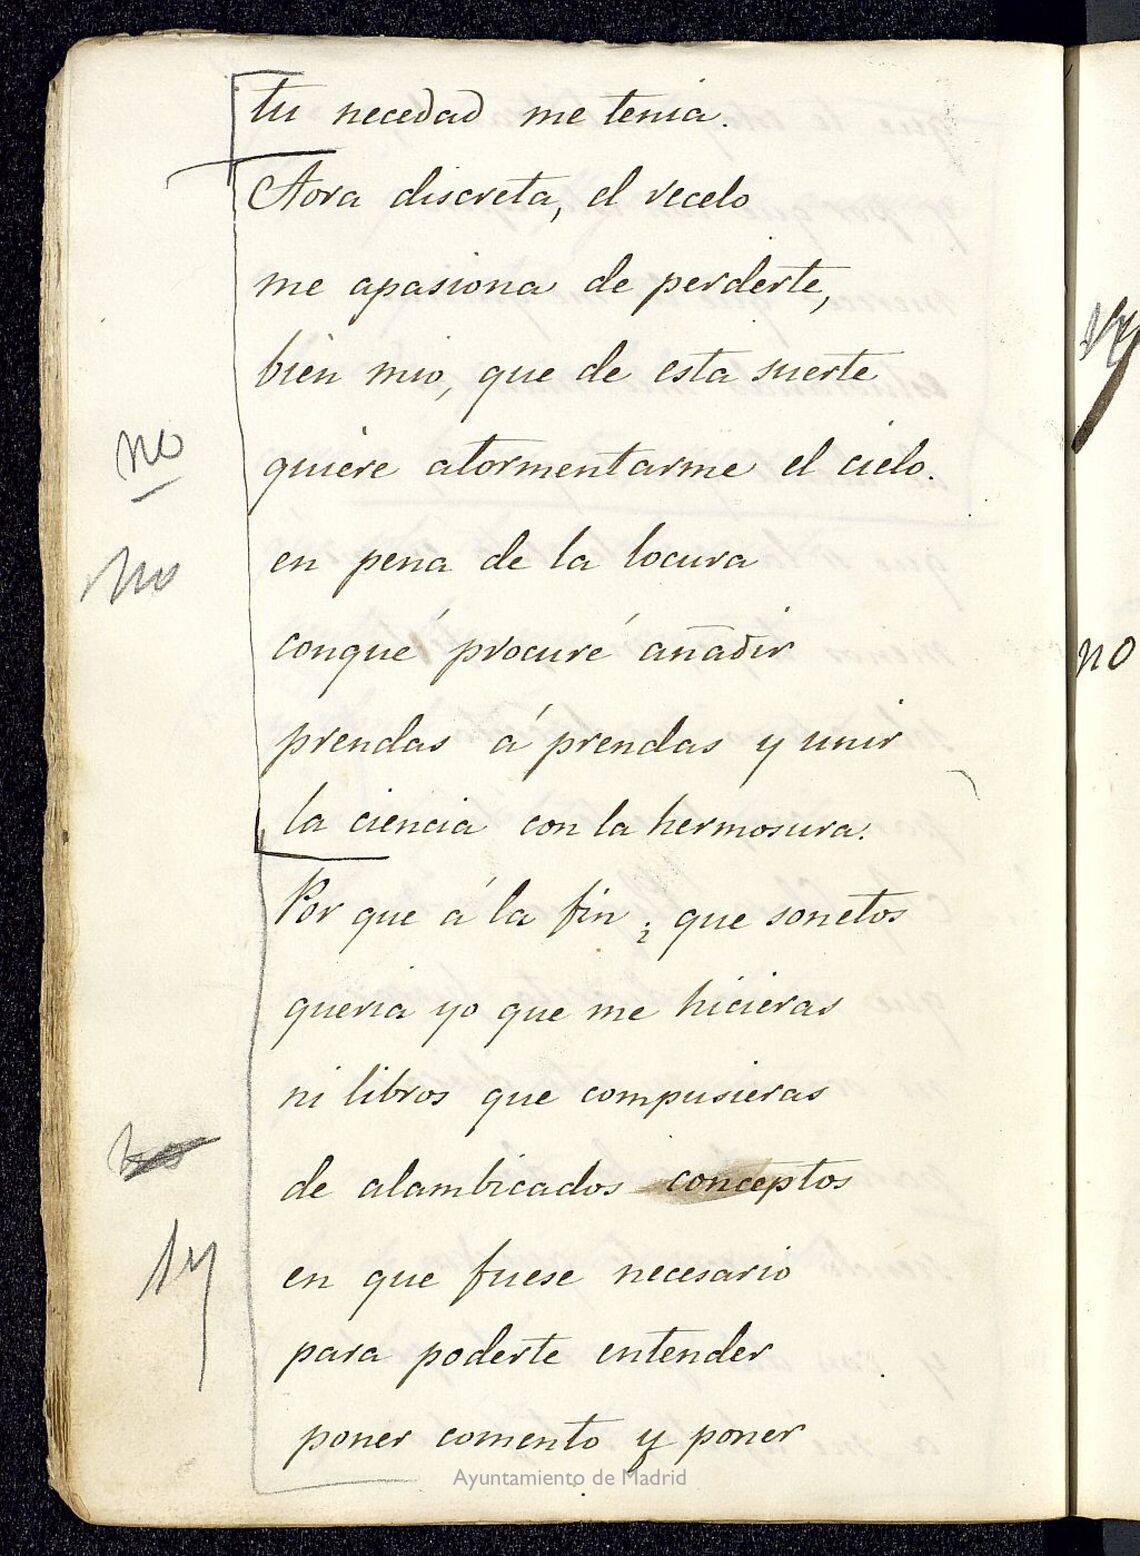 tu necedad me tenia.
Aora discreta, el recelo
me apasiona de perderte,
bien mio, que de esta suerte
no
quiere atormentarme el cielo.
no
en pena de la locura
conqué procuré añadir
no
prendas á prendas y unir
la ciencia con la hermosura.
Por que á la fin ¿ que sonetos
queria yo que me hicieras
ni libros que compusieras
no
de alambicados conceptos
en que fuese necesario
para poderte entender
poner comento y poner
Ayuntamiento de Madrid